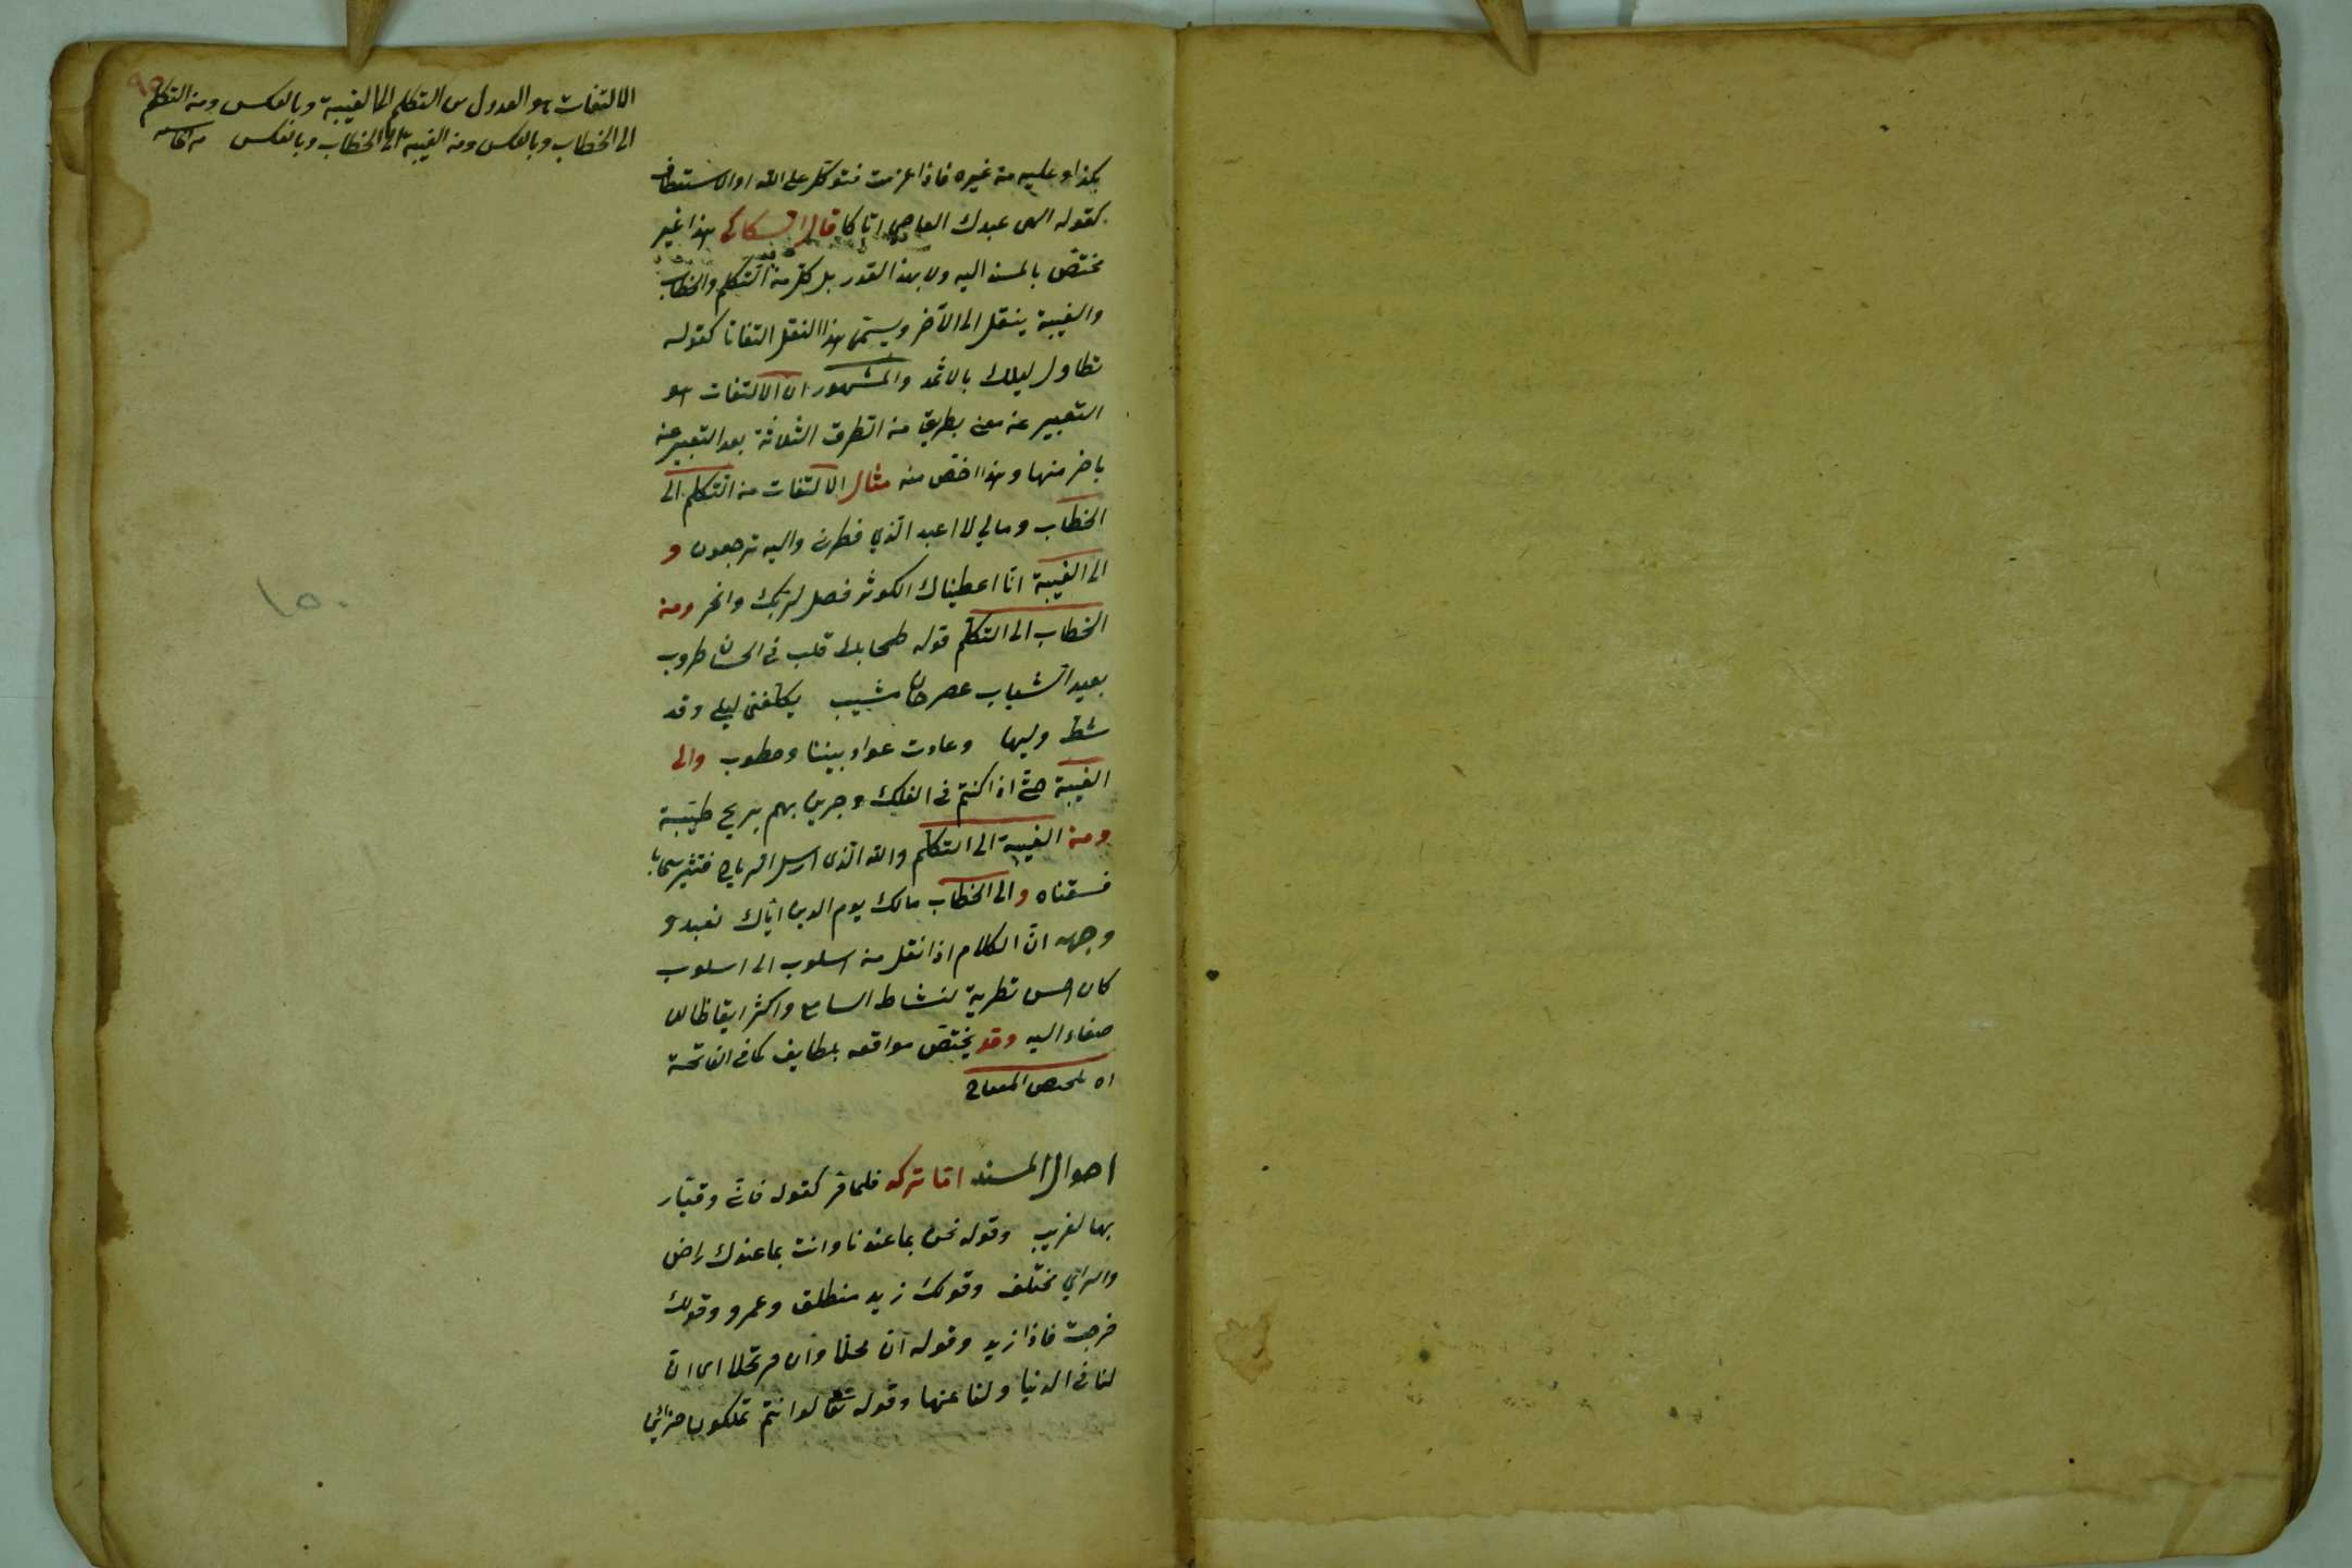 الالتفات هو العدول من التكلم الى الغيبة وبالعكس ومن التكلم
الى الخطاب وبالعكس ومن الغيبة الى الخطاب وبالعكس
بكذا وعليه من غيره فاذا عزمت فتوكل على الله او الاستعطاف
كقوله الهى عبدك العاصى اتاكا قال السكاكى هذا غير
مختص بالمسند اليه ولا بهذا القدر بل كل من التكلم والخطاب
والغيبة ينقل الى الآخر ويسمى هذا النقل التفاتا كقوله
تطاول ليلك بالاثمد والمشهور ان الالتفات هو
التعبير عن معنى بطريق من الطرق الثلاثة بعد التعبير عنه
باخر منها وهذا اخص منه مثال الالتفات من التكلم الى
الخطاب ومالي لا اعبد الذي فطرنى واليه ترجعون و
الى الغيبة انا اعطيناك الكوثر فصل لربك وانحر ومن
الخطاب الى التكلم قوله طحا بك قلب فى الحسان طروب
بعيد الشباب عصر حان مشيب يكلفنى ليلى وقد
شط وليها وعادت عواد بيننا وخطوب والى
الغيبة حتى اذا كنتم فى الفلك وجرين بهم بريح طيبة
ومن الغيبة الى التكلم والله الذى ارسل الرياح فتثير سحابا
فسقناه والى الخطاب مالك يوم الدين اياك نعبد و
وجهه ان الكلام اذا نقل من اسلوب الى اسلوب
كان احسن تطرية لنشاط السامع واكثر ايقاظا للا
صغاء اليه وقد يختص مواقعه بلطايف كما فى الفاتحة
اه تلخيص المفتاح
احوال المسند اما تركه فلما مر كقوله فانى وقيار
بها لغريب وقوله نحن بما عندنا وانت بما عندك راض
والراي مختلف وقولك زيد منطلق وعمرو وقولك
خرجت فاذا زيد وقوله ان محلا وان مرتحلا اى ان
لنا فى الدنيا ولنا عنها وقوله تعالى لو انتم تملكون خزائن
١٥٠